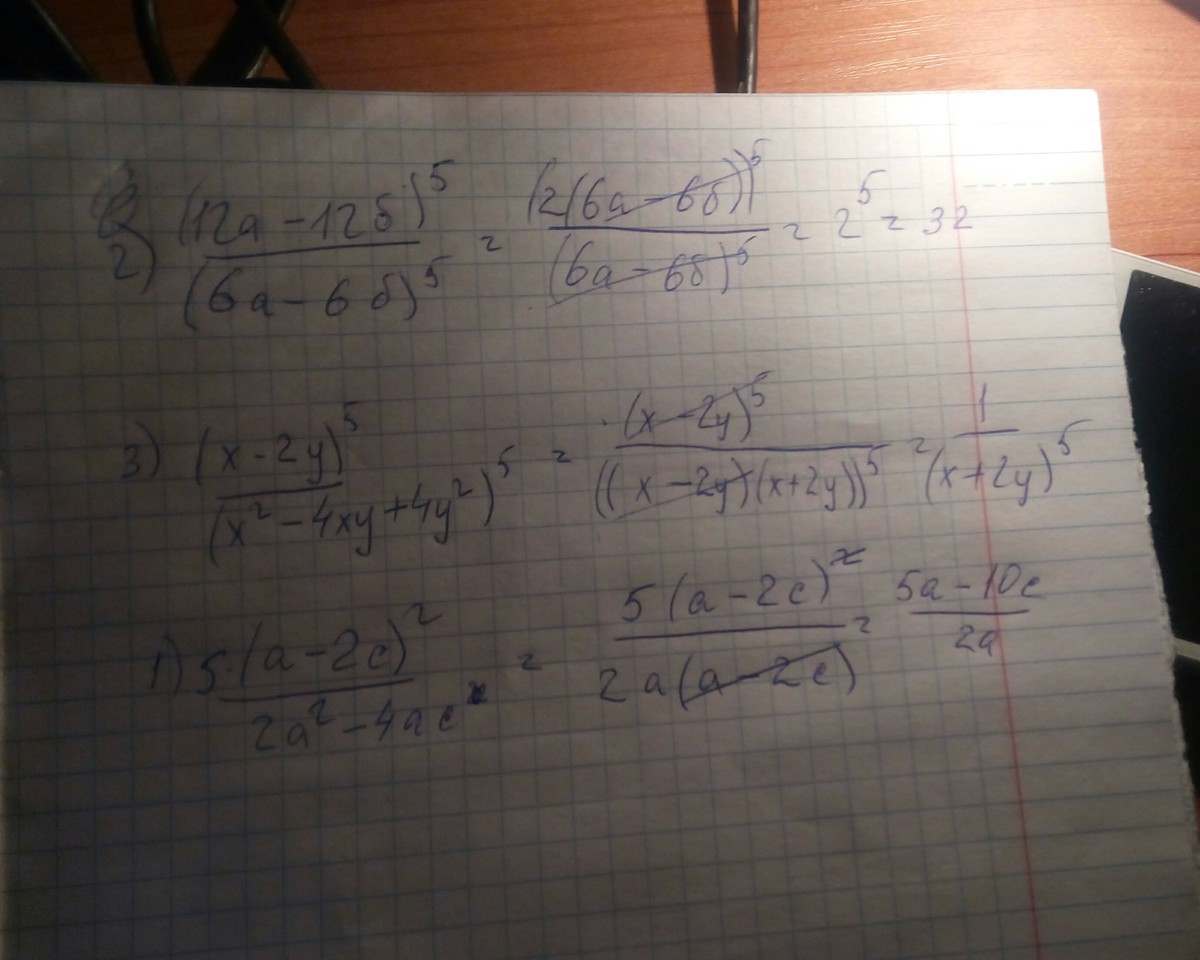 2) (12а - 12б)^5 / (6а - 6б)^5 = (2(6а - 6б))^5 / (6а - 6б)^5 = 2^5 = 32
3) (x - 2y)^5 / (x^2 - 4xy + 4y^2)^5 = (x - 2y)^5 / ((x - 2y)(x + 2y))^5 = 1 / (x + 2y)^5
1) 5·(a - 2c)^2 / 2a^2 - 4ac = 5(a - 2c)^2 / 2a(a - 2c) = 5a - 10c / 2a